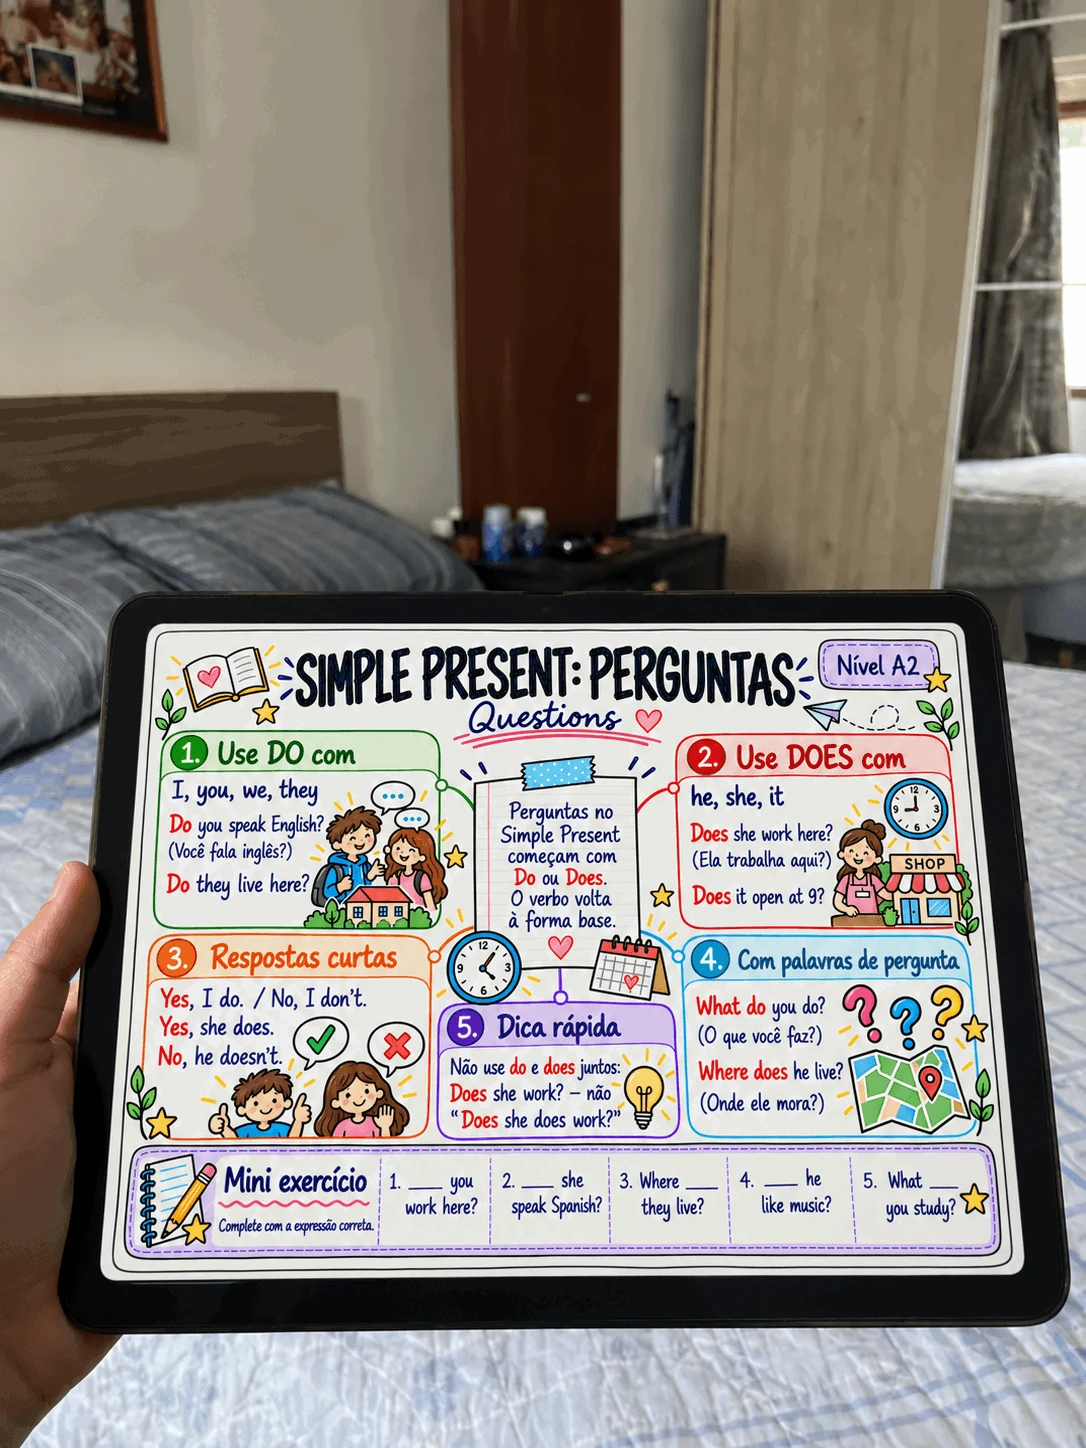 SIMPLE PRESENT: PERGUNTAS
Questions
Nível A2
1. Use DO com
I, you, we, they
Do you speak English?
(Você fala inglês?)
Do they live here?
Perguntas no
Simple Present
começam com
Do ou Does.
O verbo volta
à forma base.
2. Use DOES com
he, she, it
Does she work here?
(Ela trabalha aqui?)
Does it open at 9?
SHOP
3. Respostas curtas
Yes, I do. / No, I don't.
Yes, she does.
No, he doesn't.
4. Com palavras de pergunta
What do you do?
(O que você faz?)
Where does he live?
(Onde ele mora?)
5. Dica rápida
Não use do e does juntos:
Does she work? – não
“Does she does work?”
Mini exercício
Complete com a expressão correta.
1. ____ you
work here?
2. ____ she
speak Spanish?
3. Where ____
they live?
4. ____ he
like music?
5. What ____
you study?